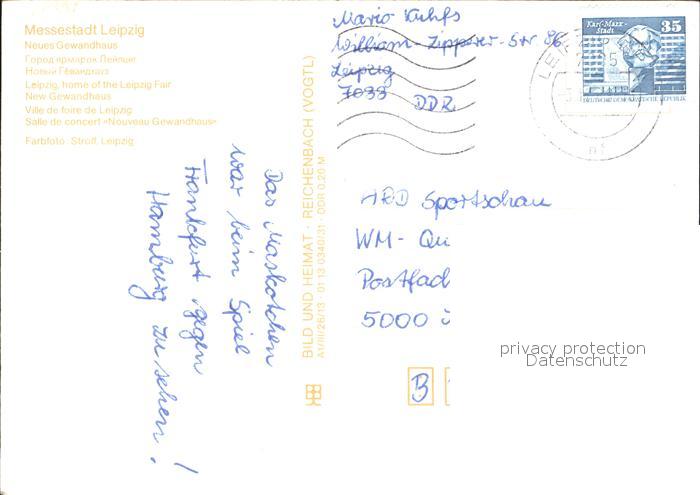 Messestadt Leipzig
Neues Gewandhaus
Город ярмарок Лейпциг
Новый Гевандхауз
Leipzig, home of the Leipzig Fair
New Gewandhaus
Ville de foire de Leipzig
Salle de concert «Nouveau Gewandhaus»
Farbfoto: Stroff, Leipzig
BILD UND HEIMAT · REICHENBACH (VOGTL)
A1/III/26/13 01 13 0340/31 DDR 0,20 M
Mario
William-Zipperer-Str 86
Leipzig
7033 DDR
Karl-Marx-
Stadt
35
DEUTSCHE DEMOKRATISCHE REPUBLIK
Das Maskotchen
war beim Spiel
Frankfurt gegen
Hamburg zu sehen!
ARD Sportschau
WM-Qu
Postfach
5000
B
privacy protection
Datenschutz